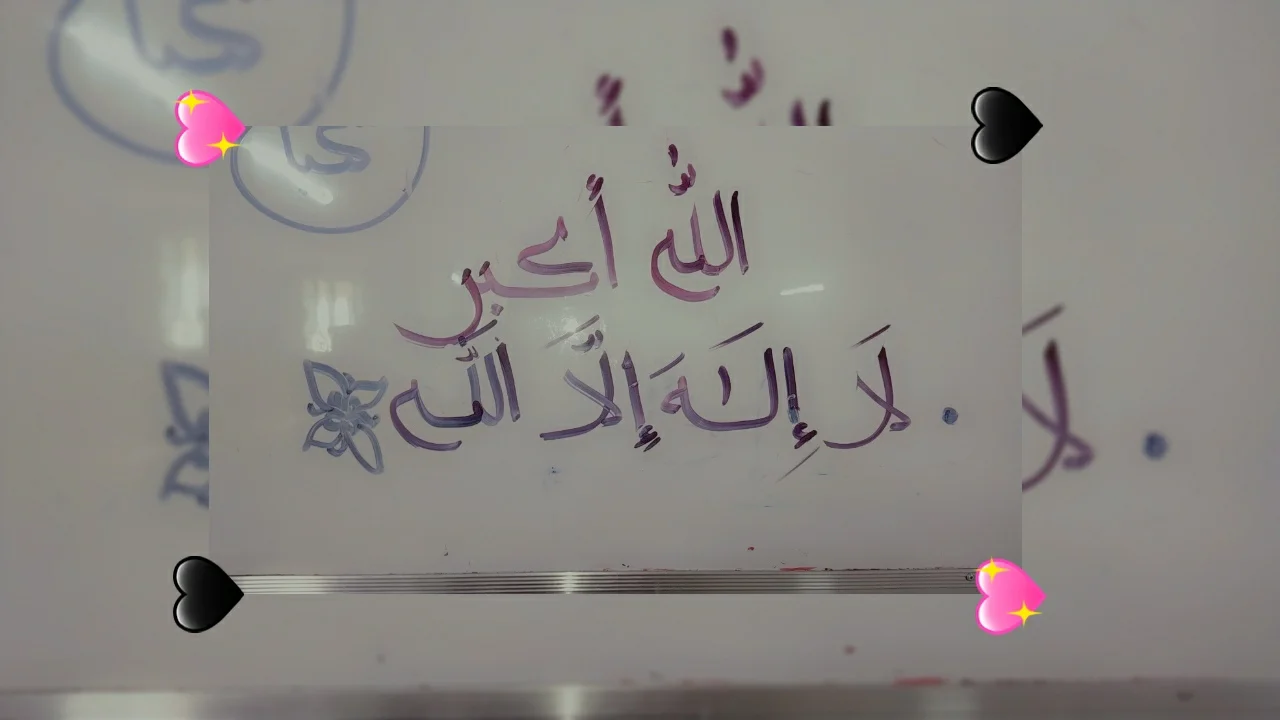 اللّٰه أكبر
لَا إِلَٰهَ إِلَّا اللّٰه